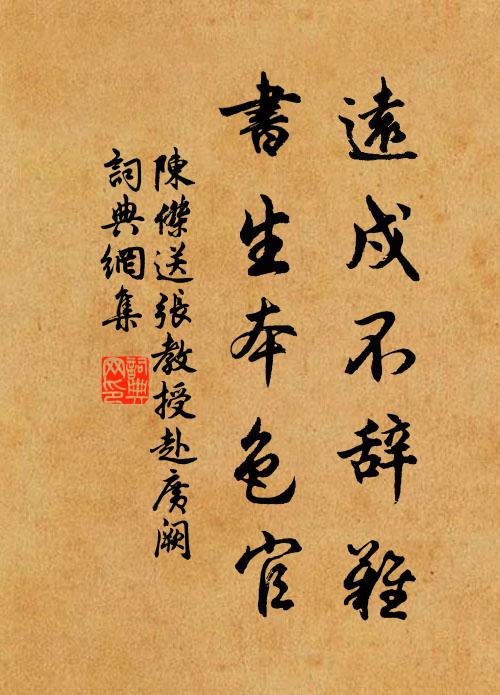 遠戍不辞難
書生本色官
陳傑送張教授赴廣阙
詞典網集
詞典
网印